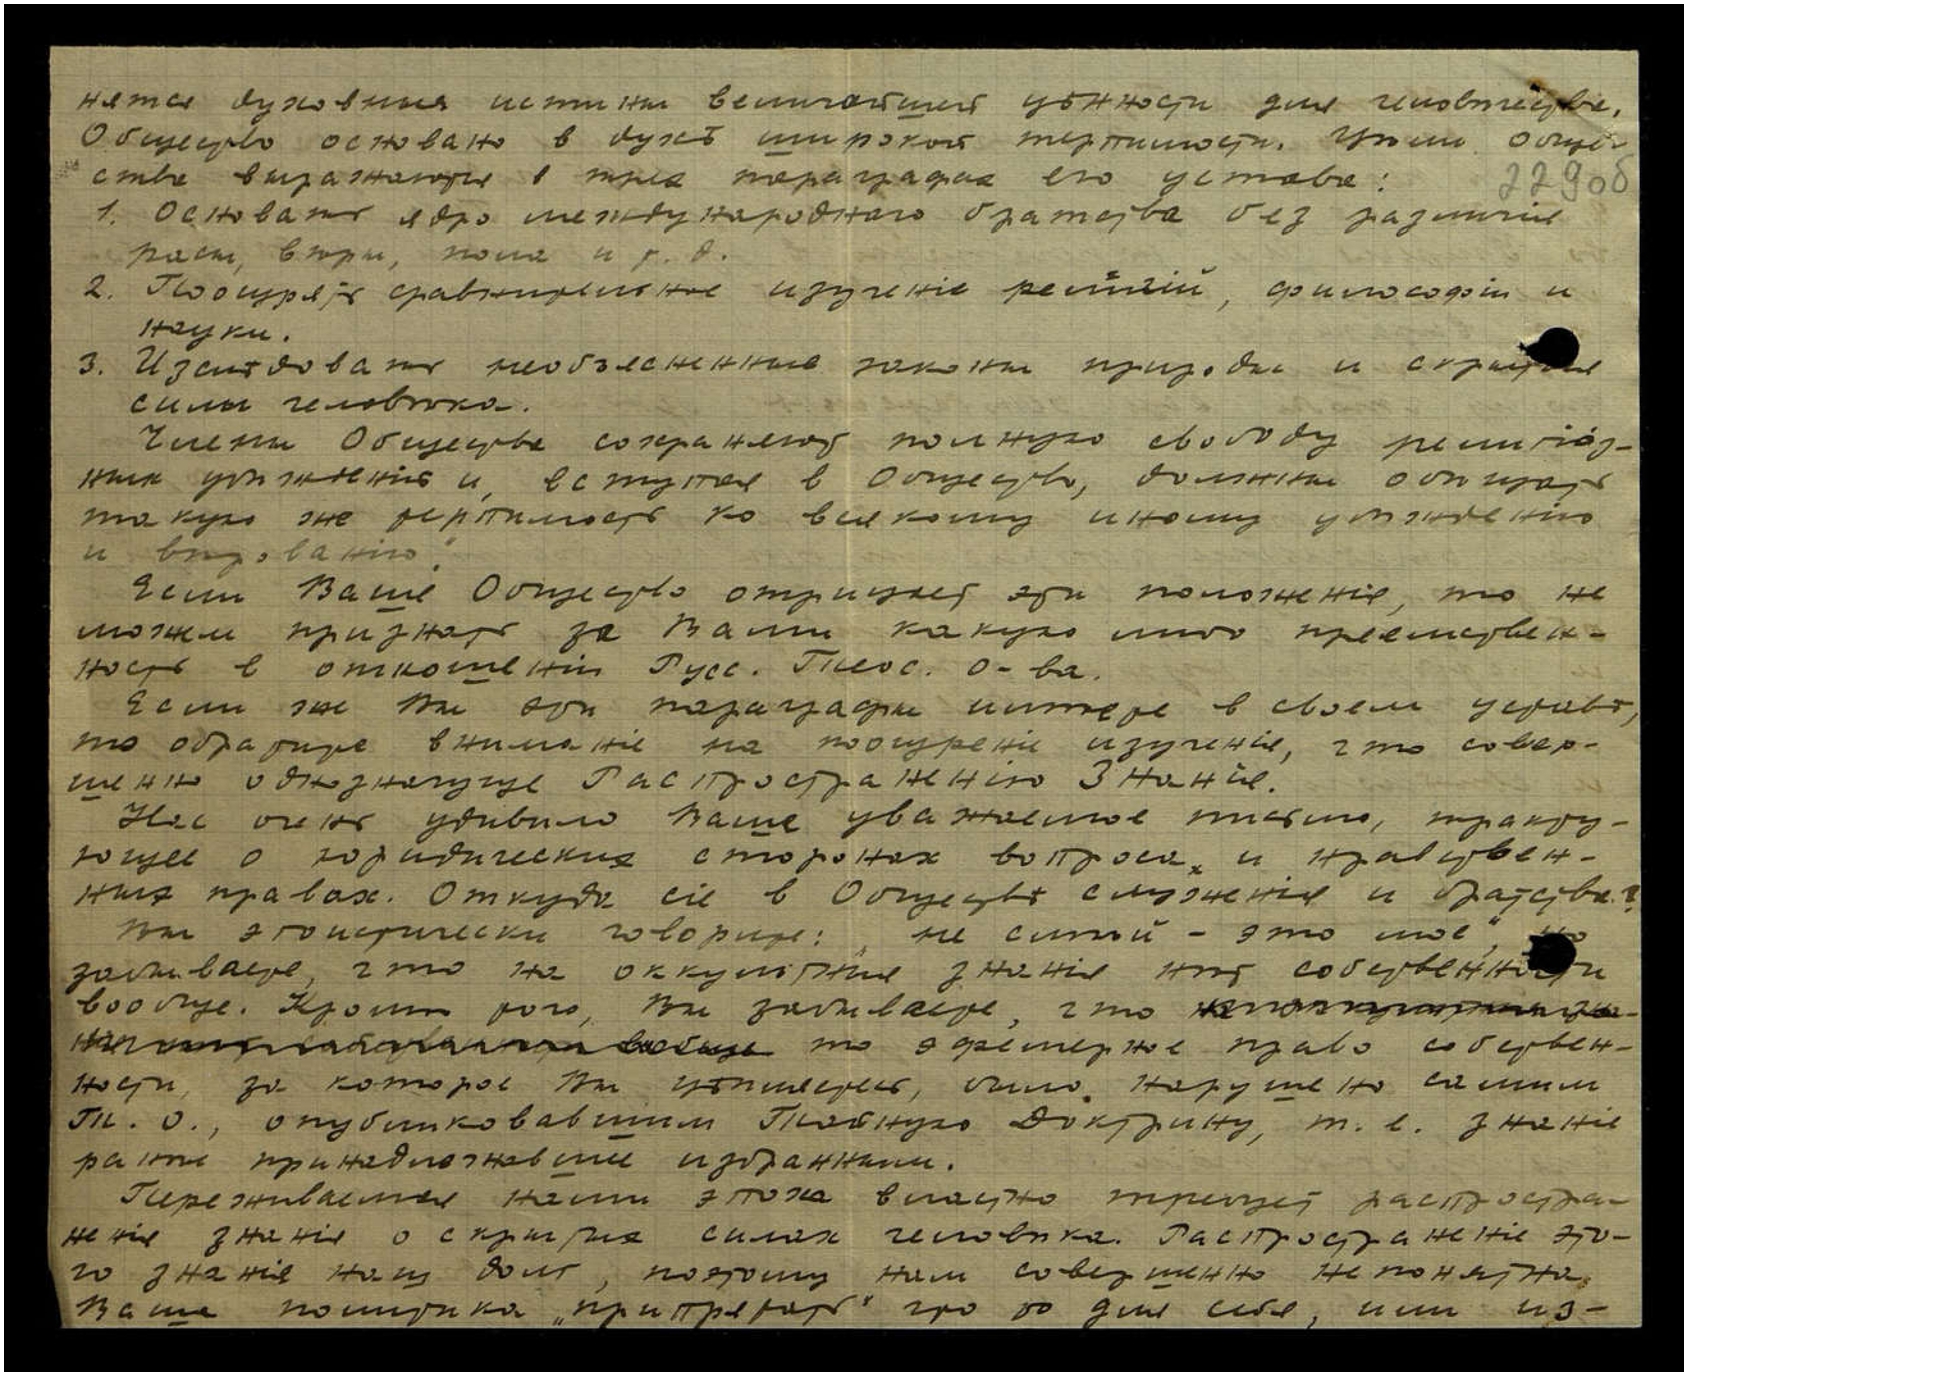 нятся духовныя истины величайшей цѣнности для человѣчества.
Общество основано в духѣ широкой терпимости. Цѣли Обще-
ства выражаются в трех параграфах его устава:
229об
1. Основать ядро международнаго братства без различія
расы, вѣры, пола и т. д.
2. Поощрять сравнительное изученіе религій, философіи и
науки.
3. Изслѣдовать необъясненные законы природы и скрытые
силы человѣка.
Члены Общества сохраняют полную свободу религіоз-
ных убѣжденій и, вступая в Общество, должны обѣщать
такую же терпимость ко всякому иному убѣжденію
и вѣрованію."
Если Ваше Общество отрицает эти положенія, то не
можем признать за Вами какую либо преемствен-
ность в отношеніи Русс. Теос. О-ва.
Если же Вы эти параграфы имѣете в своем уставѣ,
то обратите вниманіе на поощреніе изученія, что совер-
шенно однозначуще Распространенію Знанія.
Нас очень удивило Ваше уважаемое письмо, тракту-
ющее о юридических сторонах вопроса, и нравствен-
ных правах. Откуда сіе в Обществѣ служенія и братства?
Вы эгоистически говорите: „не смѣй - это мое", но
забываете, что на оккультныя знанія нѣт собственности
вообще. Кромѣ того, Вы забываете, что
то эфемерное право собствен-
ности, за которое Вы цѣпляетесь, было нарушено самим
Т. О., опубликовавшим Тайную Доктрину, т. е. знаніе
ранѣе принадлежавшее избранным.
Переживаемая нами эпоха властно требует распростра-
ненія знанія о скрытых силах человѣка. Распространеніе это-
го знанія наш долг, поэтому нам совершенно непонятна
Ваша политика „припрятать" что то для себя, или из-